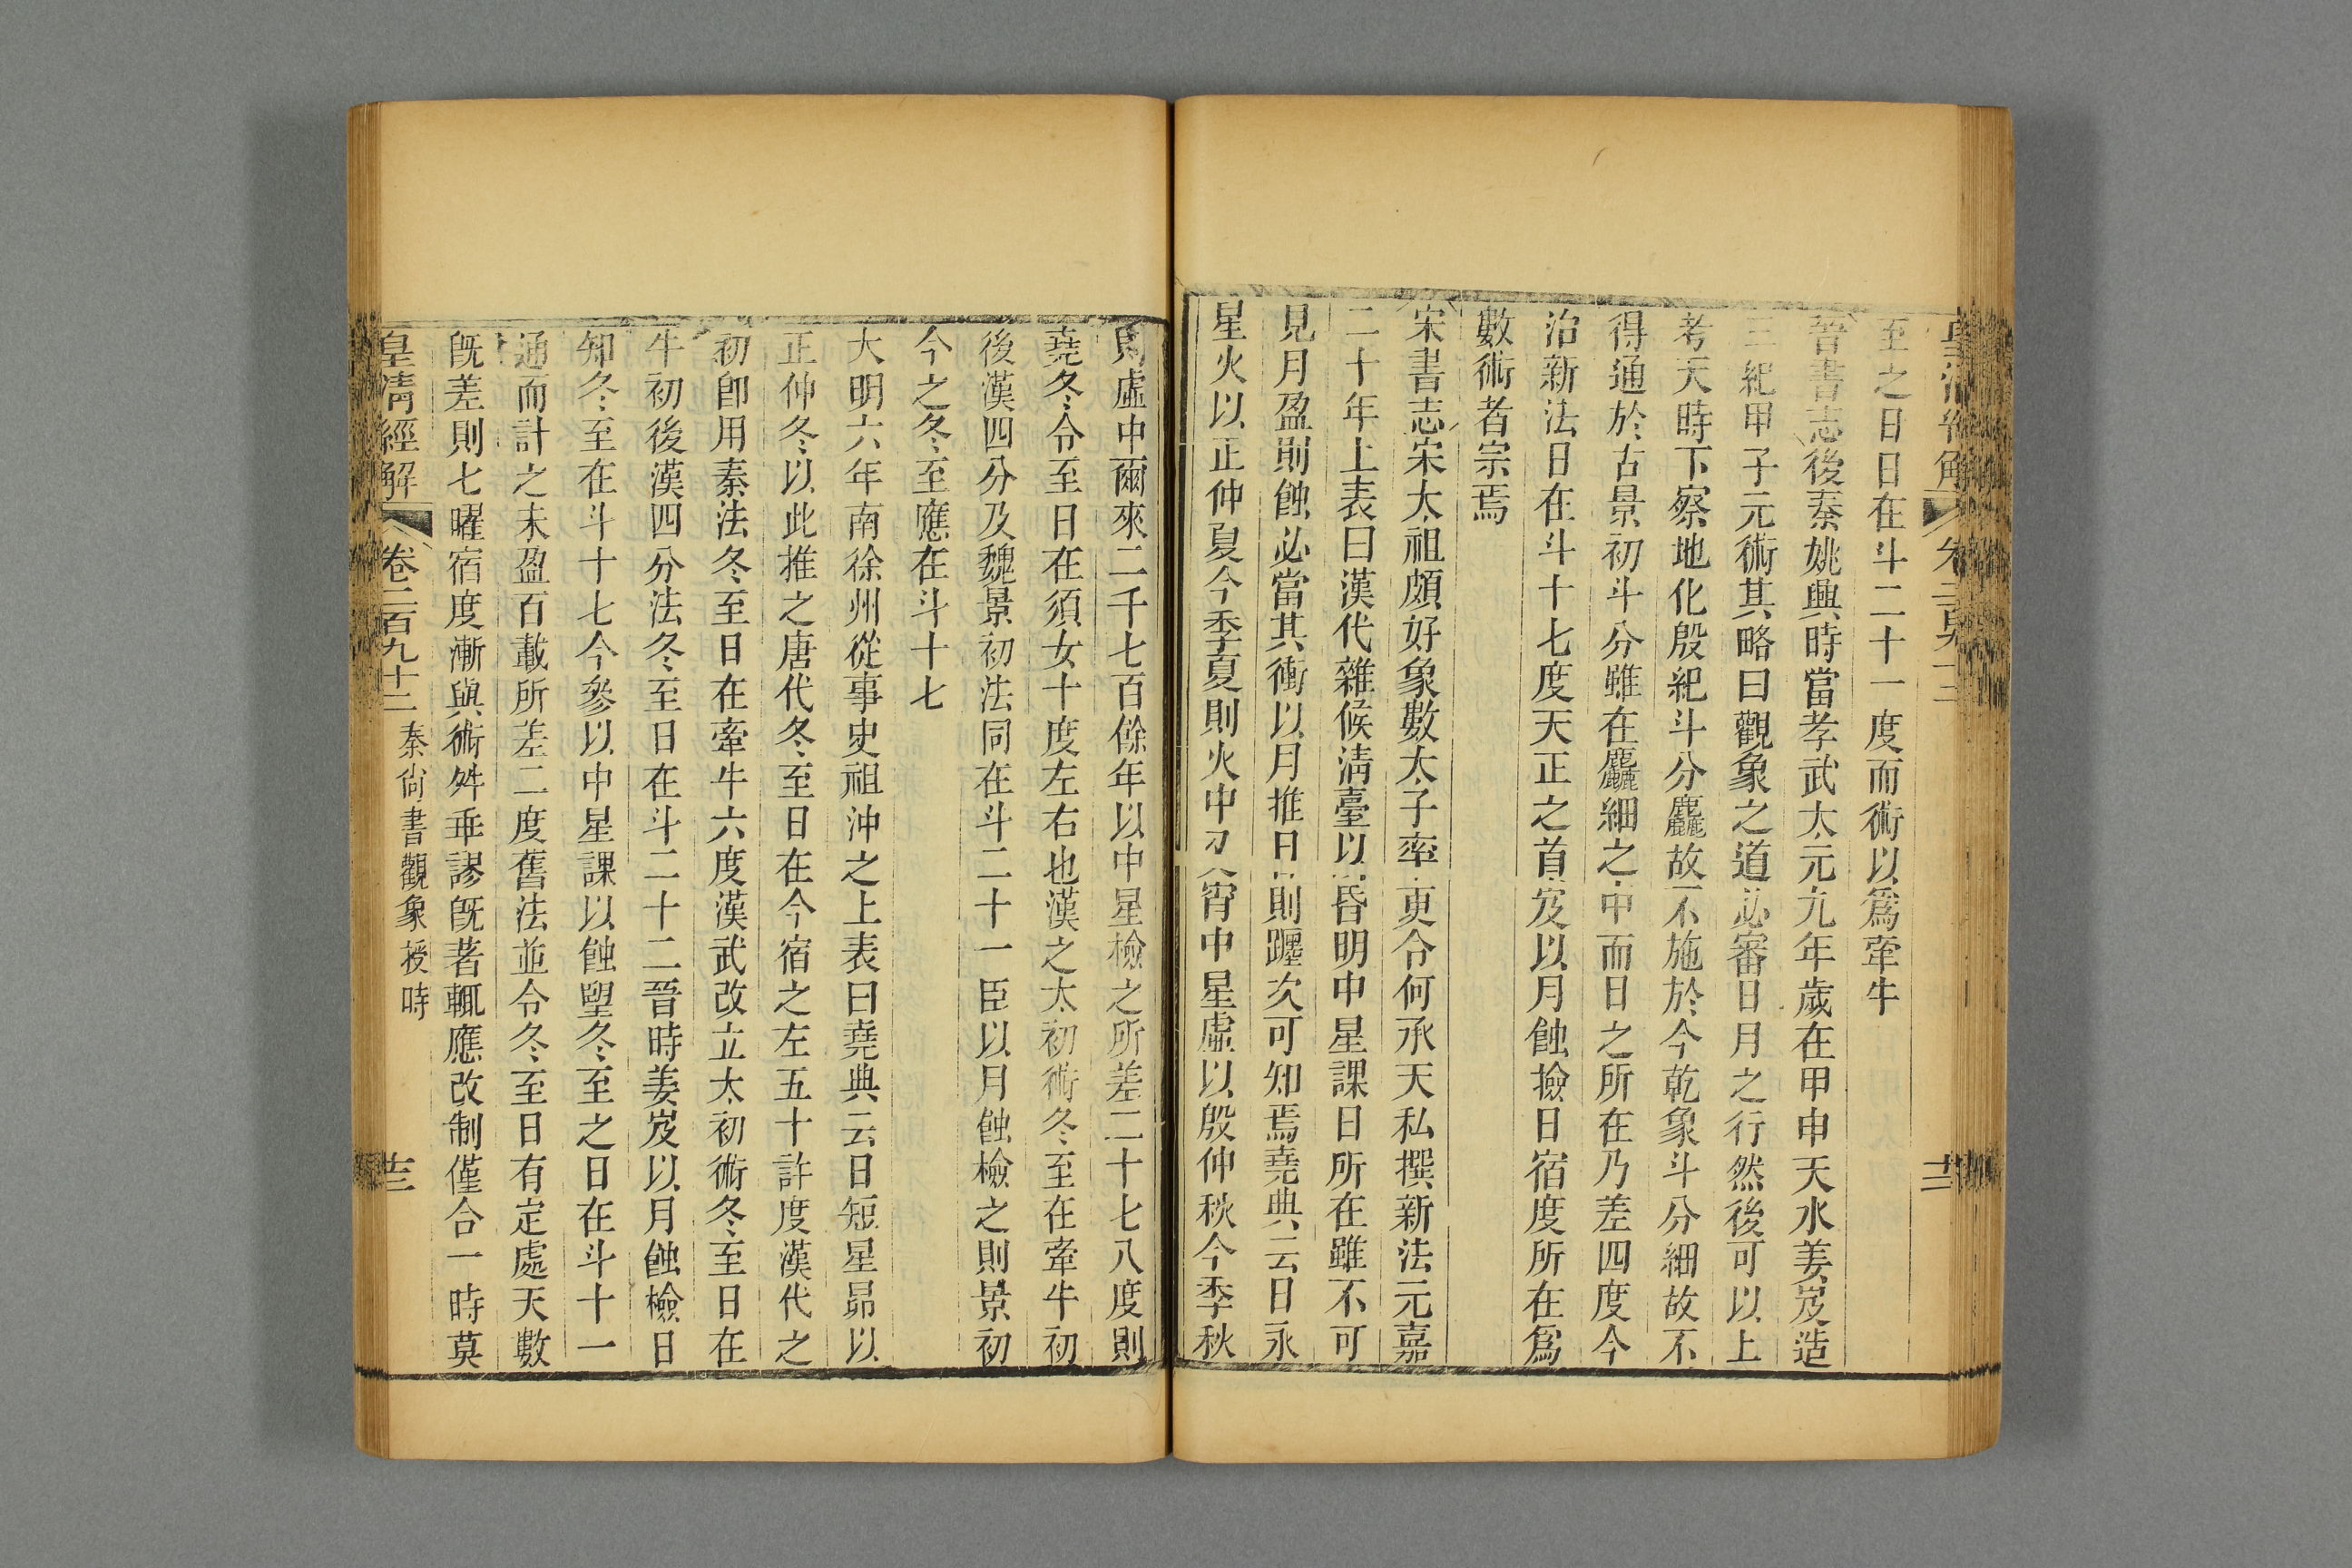 至之日日在斗二十一度而術以爲牽牛
晉書志後秦姚興時當孝武太元九年歲在甲申天水姜岌造
三紀甲子元術其略曰觀象之道必審日月之行然後可以上
考天時下察地化殷紀斗分麤故不施於今乾象斗分細故不
得通於古景初斗分雖在麤細之中而日之所在乃差四度今
治新法日在斗十七度天正之首岌以月蝕撿日宿度所在爲
數術者宗焉
宋書志宋太祖頗好象數太子率更令何承天私撰新法元嘉
二十年上表曰漢代雜候淸臺以昏明中星課日所在雖不可
見月盈則蝕必當其衝以月推日則躔次可知焉堯典云日永
星火以正仲夏今季夏則火中又宵中星虛以殷仲秋今季秋
則虛中爾來二千七百餘年以中星檢之所差二十七八度則
堯冬令至日在須女十度左右也漢之太初術冬至在牽牛初
後漢四分及魏景初法同在斗二十一臣以月蝕檢之則景初
今之冬至應在斗十七
大明六年南徐州從事史祖沖之上表曰堯典云日短星昴以
正仲冬以此推之唐代冬至日在今宿之左五十許度漢代之
初卽用秦法冬至日在牽牛六度漢武改立太初術冬至日在
牛初後漢四分法冬至日在斗二十二晉時姜岌以月蝕檢日
知冬至在斗十七今參以中星課以蝕望冬至之日在斗十一
通而計之未盈百載所差二度舊法並令冬至日有定處天數
旣差則七曜宿度漸與術舛乖謬旣著輒應改制僅合一時莫
皇淸經解 卷二百九十二 秦尙書觀象授時 十三